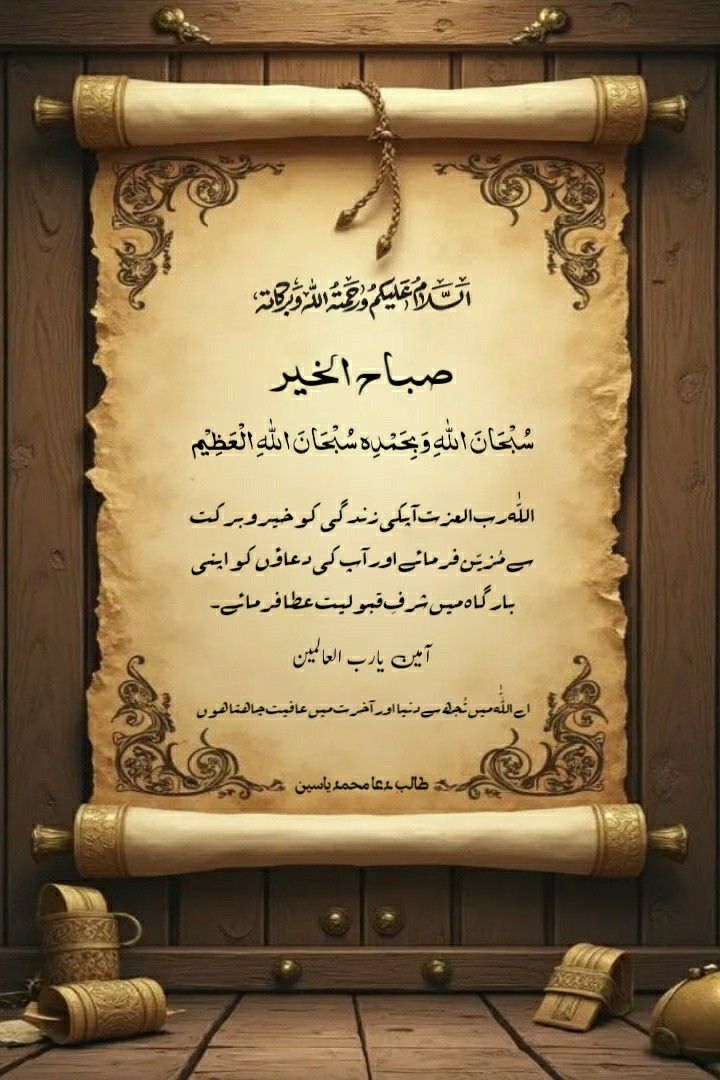 السَّلَامُ عَلَيْكُمْ وَرَحْمَةُ اللهِ وَبَرَكَاتُهُ
صباح الخير
سُبْحَانَ اللهِ وَبِحَمْدِهِ سُبْحَانَ اللهِ الْعَظِيْم
اللّٰه رب العزت آپکی زندگی کو خیر و برکت
سے مُزیّن فرمائے اور آپ کی دعاؤں کو اپنی
بارگاہ میں شرفِ قبولیت عطا فرمائے۔
آمین یارب العالمین
اے اللّٰه میں تُجھ سے دنیا اور آخرت میں عافیت چاہتا ہوں
طالب دعا محمد یاسین